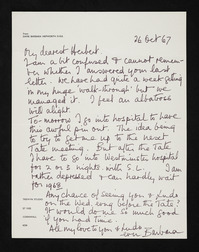 26 Oct 67
My dearest Herbert.
I am a bit confused & cannot remem-
ber whether I answered your last
letter. We have had quite a week going
in my huge 'walk-through' but we
managed it. I feel an albatross
will alight.
To-morrow I go into hospital to have
this awful arm out. The idea being
to try to set me up to the next
Tate meeting. But after the Tate
I have to go into Westminster hospital
for 2 or 3 nights with S.L. I am
rather depressed & can hardly wait
for 1968.
Any chance of seeing you & Ludo
on the Wed. eng before the Tate?
It would do me so much good
if you had time.
All my love to you & Ludo
ever Barbara